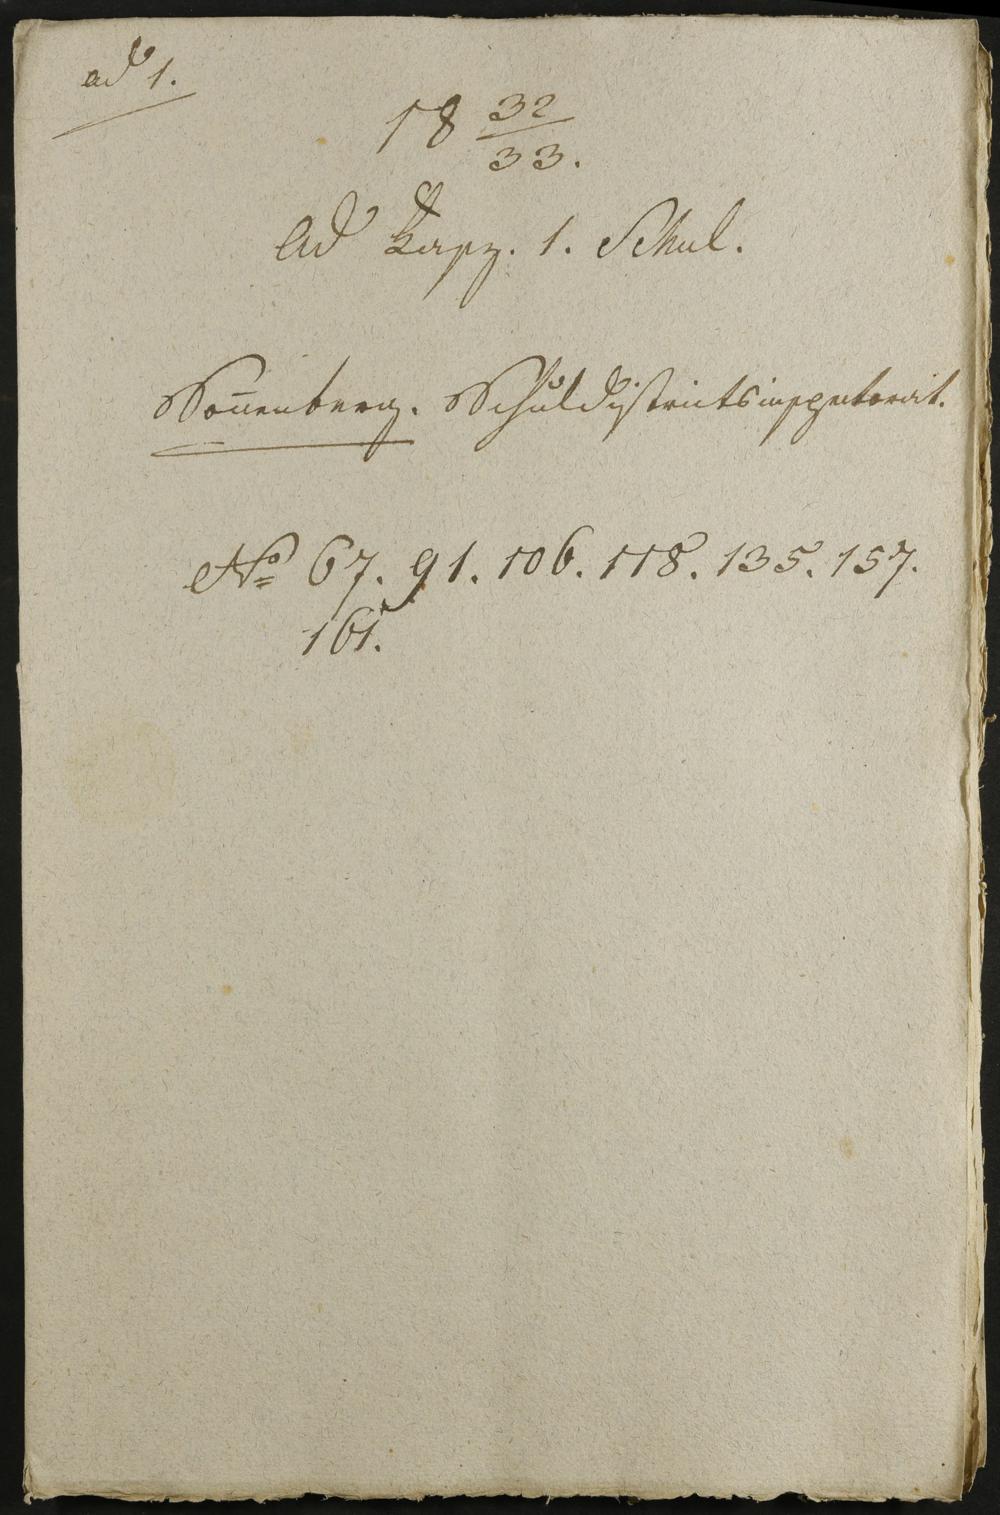 ad 1.
18 32/33.
Ad Kapz. 1. Schul.
Sonnenberg. Schuldistrictsinspectorat.
No 67. 91. 106. 118. 135. 157.
161.